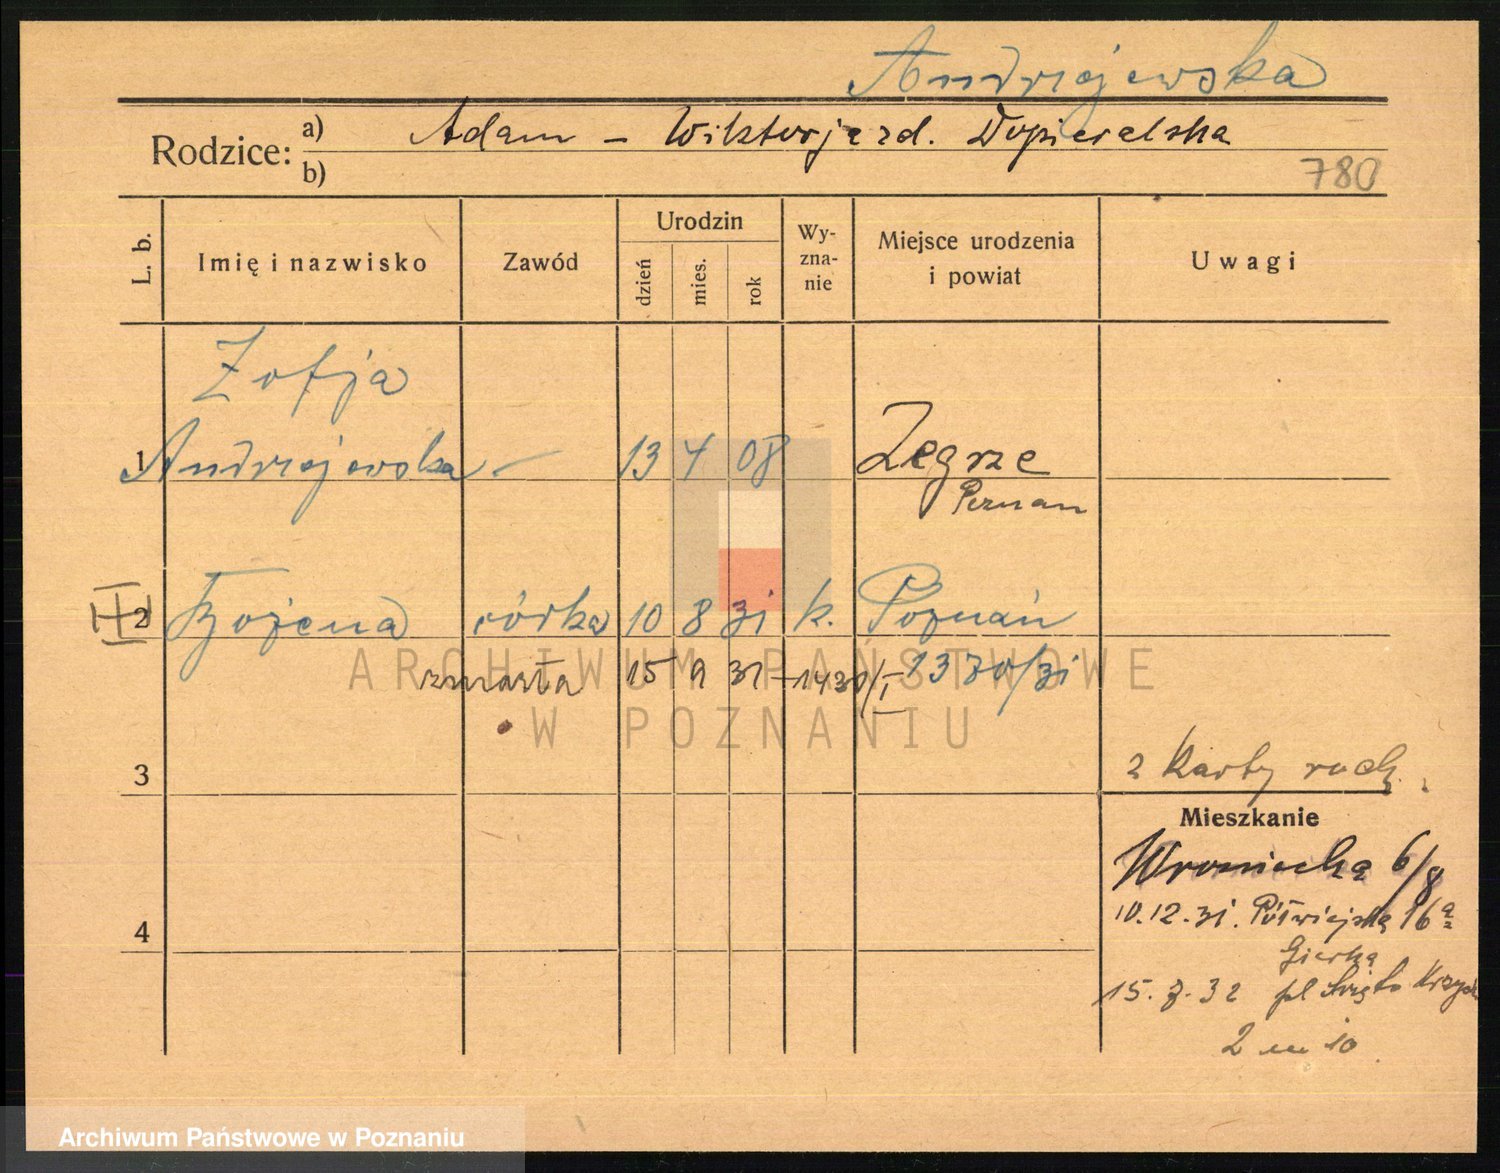 Andrzejewska
Rodzice: a) Adam – Wiktorja zd. Dopieralska
b)
780
L. b. Imię i nazwisko Zawód Urodzin dzień mies. rok Wy-zna-nie Miejsce urodzenia i powiat Uwagi
Zofja
1 Andrzejewska – 13 4 08 Zegrze
Poznań
2 Bożena córka 10 8 31 k. Poznań
zmarła 15 9 31 1370/31
ARCHIWUM PAŃSTWOWE
W POZNANIU
3
2 Karty rodz.
Mieszkanie
Wroniecka 6/8
4
10.12.31. Półwiejska 16a
15.7.32 pl Święto Krzyski
2 m 10
Archiwum Państwowe w Poznaniu